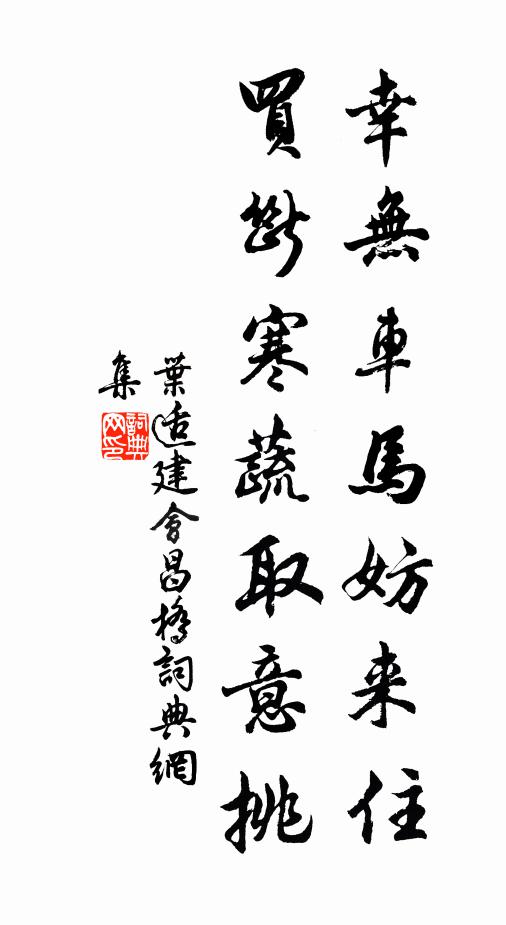 幸無車馬妨来住
買斷寒蔬取意挑
葉適建會昌橋詞典網
集
詞典网印